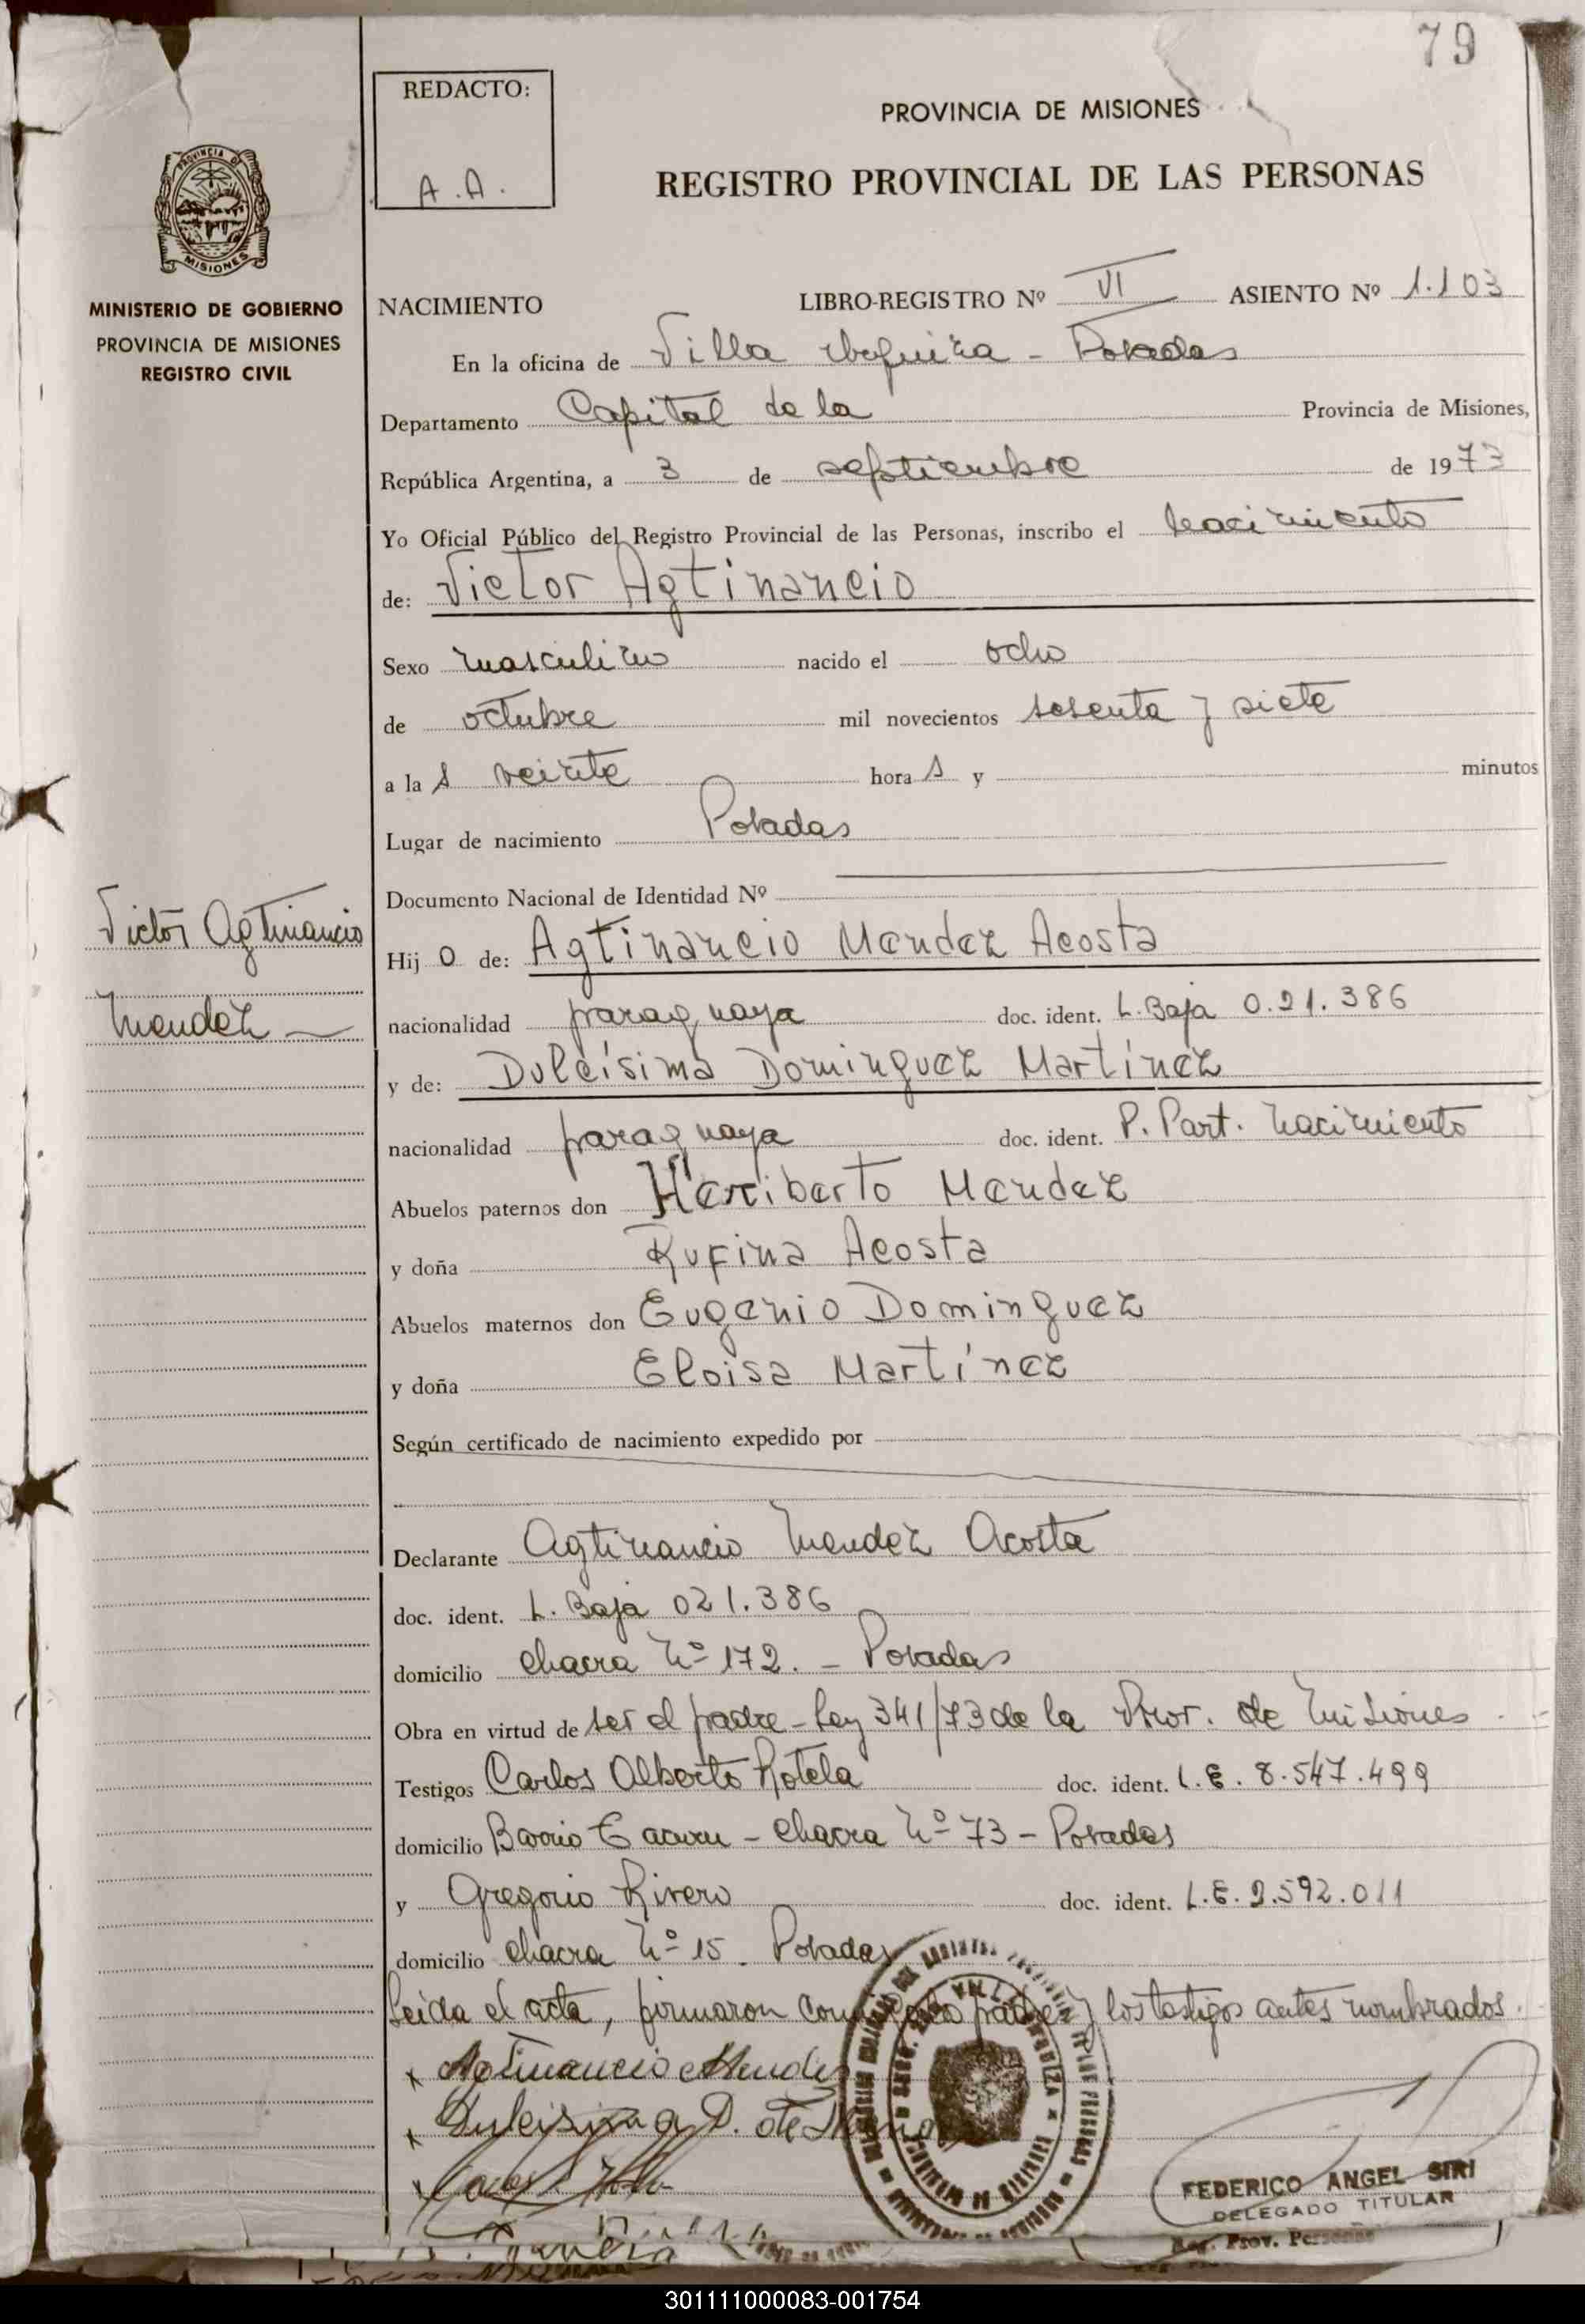 79
REDACTO:
A.A.
PROVINCIA DE MISIONES
REGISTRO PROVINCIAL DE LAS PERSONAS
PROVINCIA DE
MISIONES
MINISTERIO DE GOBIERNO
PROVINCIA DE MISIONES
REGISTRO CIVIL
NACIMIENTO LIBRO-REGISTRO Nº VI ASIENTO Nº 1.103
En la oficina de Villa Urquiza - Posadas
Departamento Capital de la Provincia de Misiones,
República Argentina, a 3 de septiembre de 1973
Yo Oficial Público del Registro Provincial de las Personas, inscribo el nacimiento
de: Victor Agtinancio
Sexo masculino nacido el ocho
de octubre mil novecientos sesenta y siete
a la s veinte hora s y minutos
Lugar de nacimiento Posadas
Documento Nacional de Identidad Nº
Victor Agtinancio
Mendez
Hij o de: Agtinancio Mendez Acosta
nacionalidad paraguaya doc. ident. L. Baja 0.21.386
y de: Dulcísima Dominguez Martínez
nacionalidad paraguaya doc. ident. P. Part. Nacimiento
Abuelos paternos don Heriberto Mendez
y doña Rufina Acosta
Abuelos maternos don Eugenio Dominguez
y doña Eloisa Martínez
Según certificado de nacimiento expedido por
Declarante Agtinancio Mendez Acosta
doc. ident. L. Baja 021.386
domicilio chacra Nº 172. - Posadas
Obra en virtud de ser el padre - Ley 341/73 de la Prov. de Misiones
Testigos Carlos Alberto Rotela doc. ident. L.E. 8.547.499
domicilio Barrio Tacuru - Chacra Nº 73 - Posadas
y Gregorio Rivero doc. ident. L.E. 2.592.011
domicilio chacra Nº 15. Posadas
Leida el acta, firmaron conmigo padre y los testigos antes nombrados.
Agtinancio Mendez
Dulcisima D. de
FEDERICO ANGEL SIRI
DELEGADO TITULAR
Reg. Prov. Personas
301111000083-001754